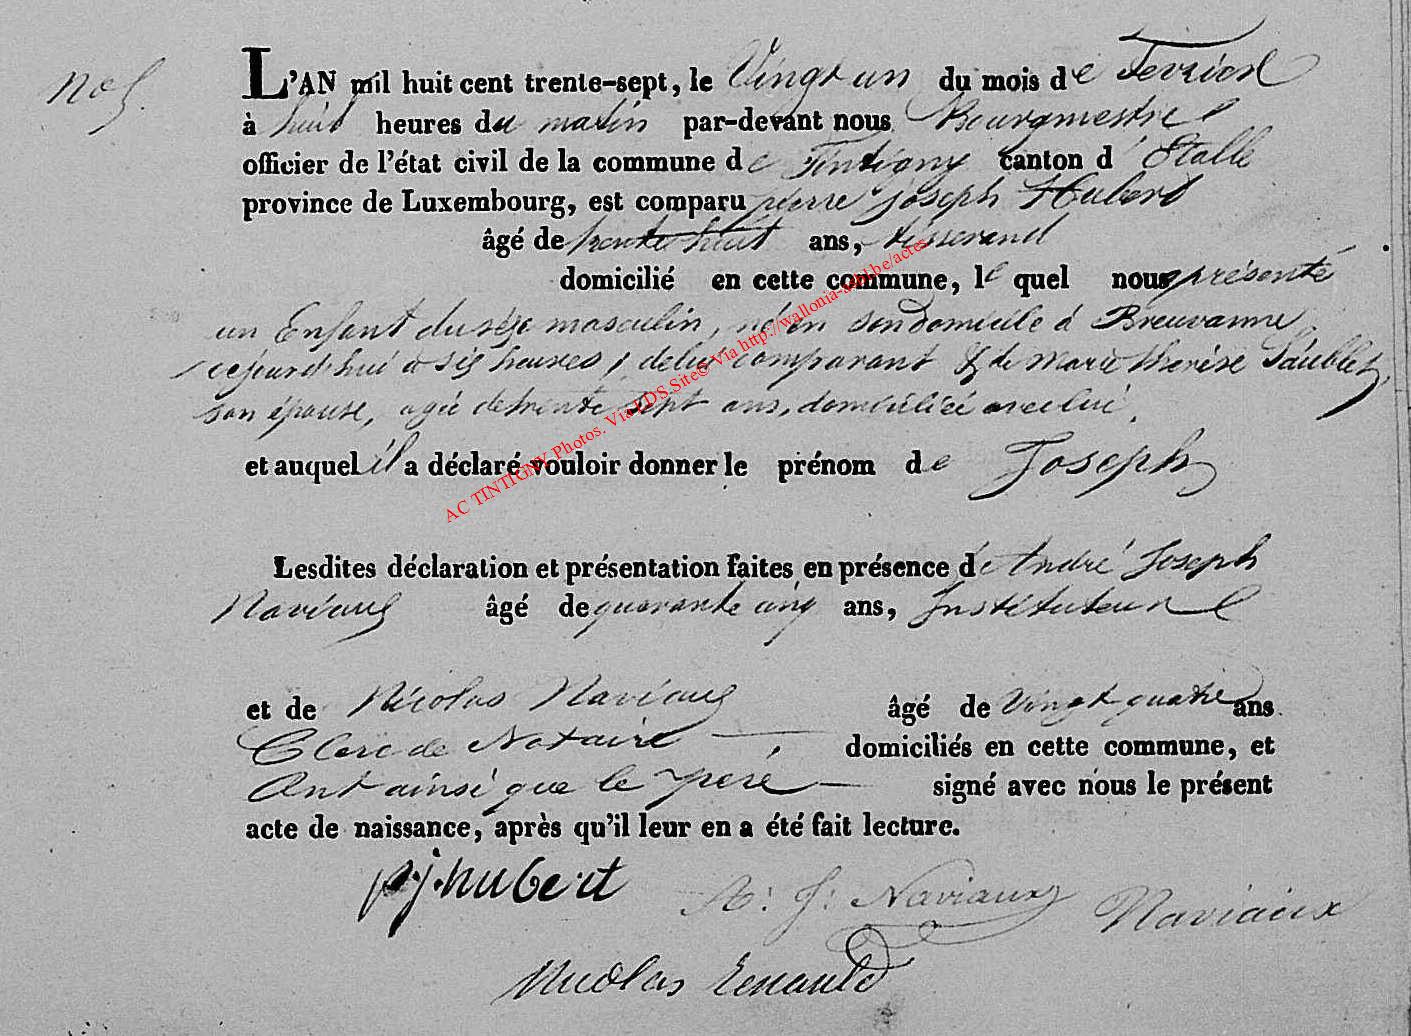 N° 5.
L'AN mil huit cent trente-sept, le Vingt un du mois de Fevrier
à huit heures du matin par-devant nous Bourgmestre
officier de l'état civil de la commune de Tintigny canton d'Etalle
province de Luxembourg, est comparu pierre Joseph Hubert
âgé de trente huit ans, tisserand
domicilié en cette commune, lequel nous présenté
un Enfant du sexe masculin, né en son domicile à Breuvanne
cejourd'hui à six heures, de lui comparant & de Marie therèse
son épouse, agée de trente sept ans, domiciliée avec lui,
et auquel il a déclaré vouloir donner le prénom de Joseph
Lesdites déclaration et présentation faites en présence de André Joseph
Naviaux âgé de quarante cinq ans, Instituteur
et de Nicolas Naviaux âgé de Vingt quatre ans
Clerc de Notaire domiciliés en cette commune, et
Ont ainsi que le peré signé avec nous le présent
acte de naissance, après qu'il leur en a été fait lecture.
p.j.hubert A: J: Naviaux Naviaux
Nicolas Renauld
AC TINTIGNY Photos. Via LDS Site© Via http://wallonia-asbl.be/actes